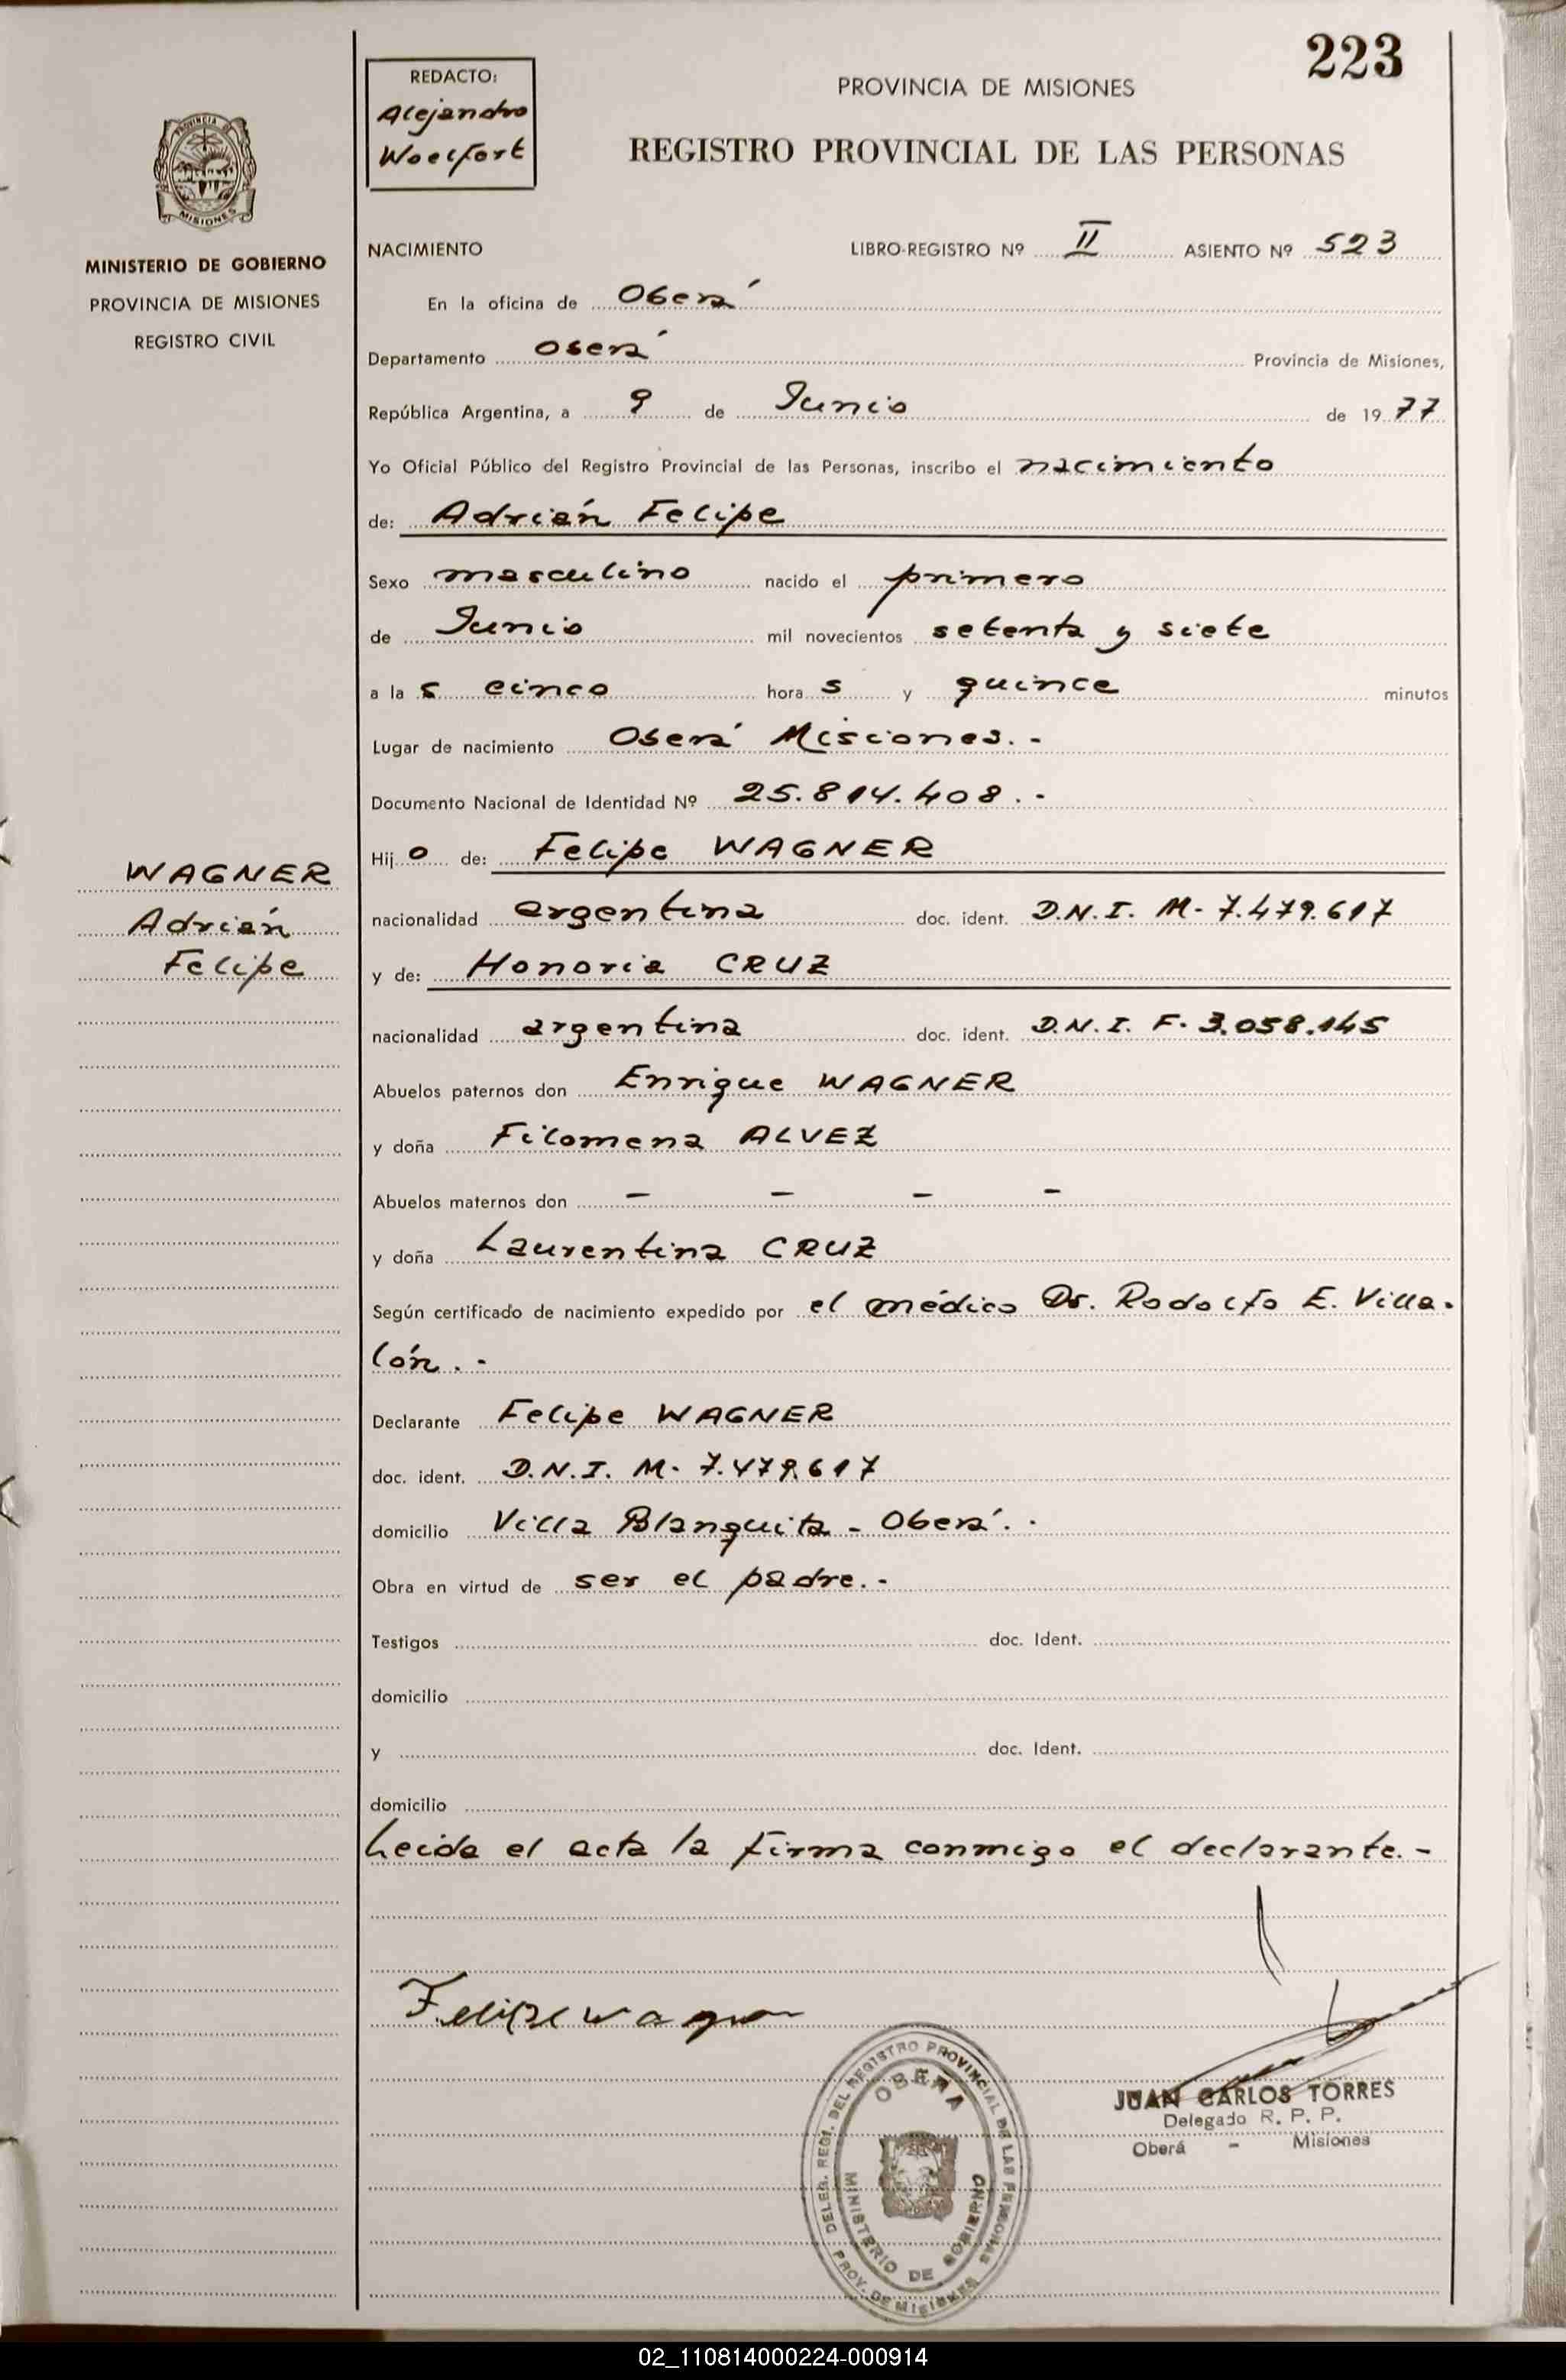 223
REDACTO:
Alejandro
Woelfort
PROVINCIA DE MISIONES
REGISTRO PROVINCIAL DE LAS PERSONAS
PROVINCIA DE
MISIONES
MINISTERIO DE GOBIERNO
PROVINCIA DE MISIONES
REGISTRO CIVIL
NACIMIENTO LIBRO-REGISTRO Nº II ASIENTO Nº 523
En la oficina de Oberá
Departamento Oberá Provincia de Misiones,
República Argentina, a 9 de Junio de 1977
Yo Oficial Público del Registro Provincial de las Personas, inscribo el nacimiento
de: Adrián Felipe
Sexo masculino nacido el primero
de Junio mil novecientos setenta y siete
a la s cinco hora s y quince minutos
Lugar de nacimiento Oberá Misiones.-
Documento Nacional de Identidad Nº 25.814.408.-
Hijo de: Felipe WAGNER
WAGNER
Adrián
Felipe
nacionalidad argentina doc. ident. D.N.I. M- 7.479.617
y de: Honoria CRUZ
nacionalidad argentina doc. ident. D.N.I. F- 3.058.145
Abuelos paternos don Enrique WAGNER
y doña Filomena ALVEZ
Abuelos maternos don - - - -
y doña Laurentina CRUZ
Según certificado de nacimiento expedido por el médico Dr. Rodolfo E. Villa-
lón.-
Declarante Felipe WAGNER
doc. ident. D.N.I. M- 7.479.617
domicilio Villa Blanquita - Oberá.-
Obra en virtud de ser el padre.-
Testigos doc. Ident.
domicilio
y doc. Ident.
domicilio
Leida el acta la firma conmigo el declarante.-
Felipe Wagner
DELEG. REGI. DEL REGISTRO PROVINCIAL DE LAS PERSONAS
OBERA
MINISTERIO DE GOBIERNO
PROV. DE MISIONES
JUAN CARLOS TORRES
Delegado R. P. P.
Oberá - Misiones
02_110814000224-000914